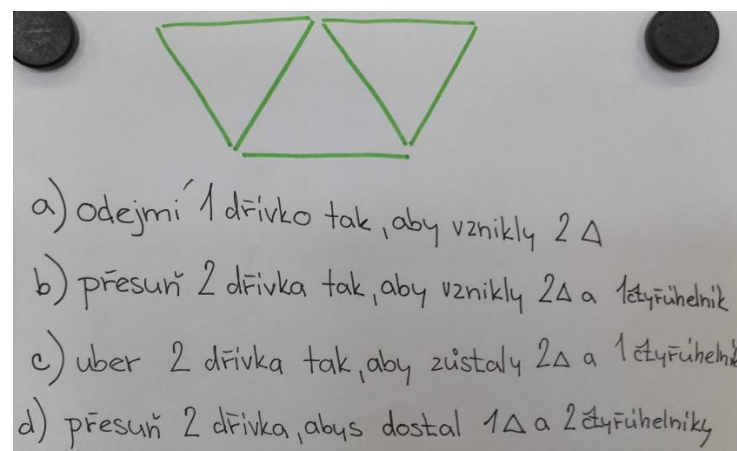 a) odejmi 1 dřívko tak, aby vznikly 2 △
b) přesuň 2 dřívka tak, aby vznikly 2△ a 1čtyřúhelník
c) uber 2 dřívka tak, aby zůstaly 2△ a 1 čtyřúhelník
d) přesuň 2 dřívka, abys dostal 1△ a 2 čtyřúhelníky